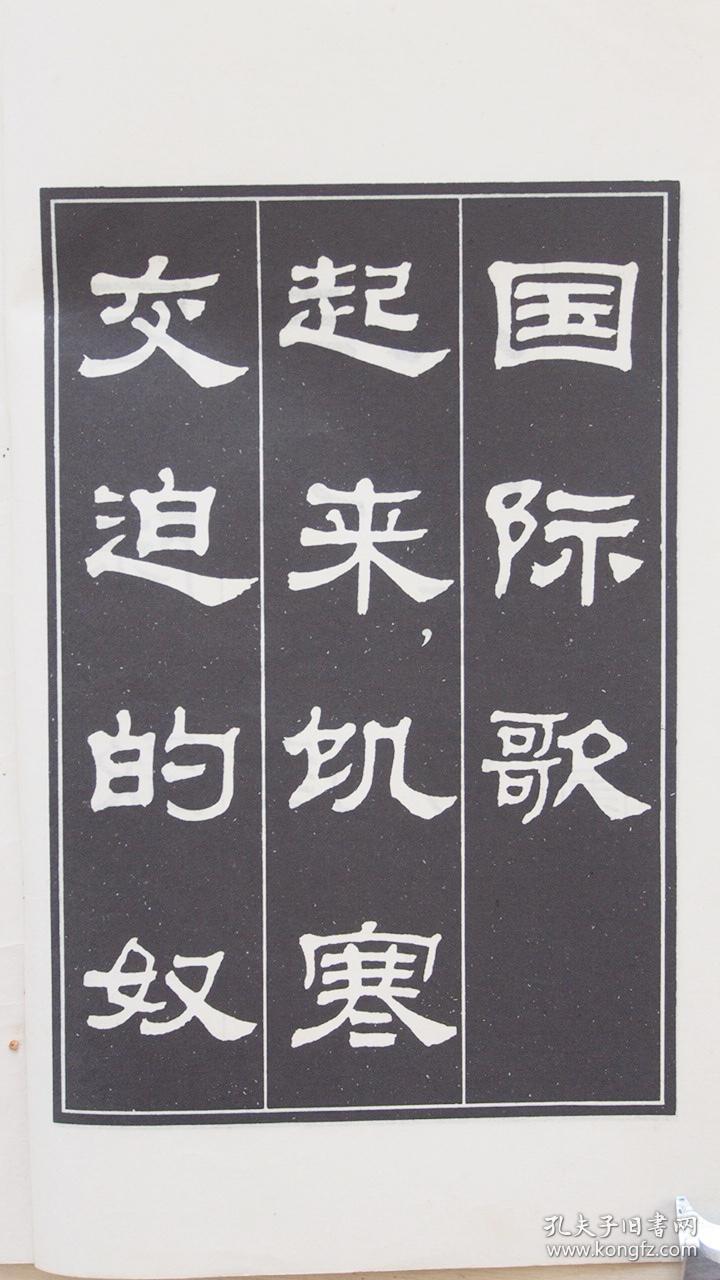 国际歌
起来,饥寒
交迫的奴
孔夫子旧书网
www.kongfz.com